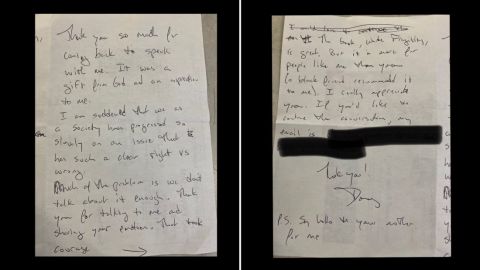 Thank you so much for
coming back to speak
with me. It was a
gift from God and an inspiration
to me.
I am saddened that we as
a society have progressed so
slowly on an issue that
has such a clear right vs
wrong.
Much of the problem is we don't
talk about it enough. Thank
you for talking to me and
sharing your emotions. That took
courage
The book, White Fragility,
is great. But it is more for
people like me than you
(a black friend recommended it
to me). I really appreciate
you. If you'd like to
continue the conversation, my
email is
Thank you!
P.S. Say hello to your mother
for me